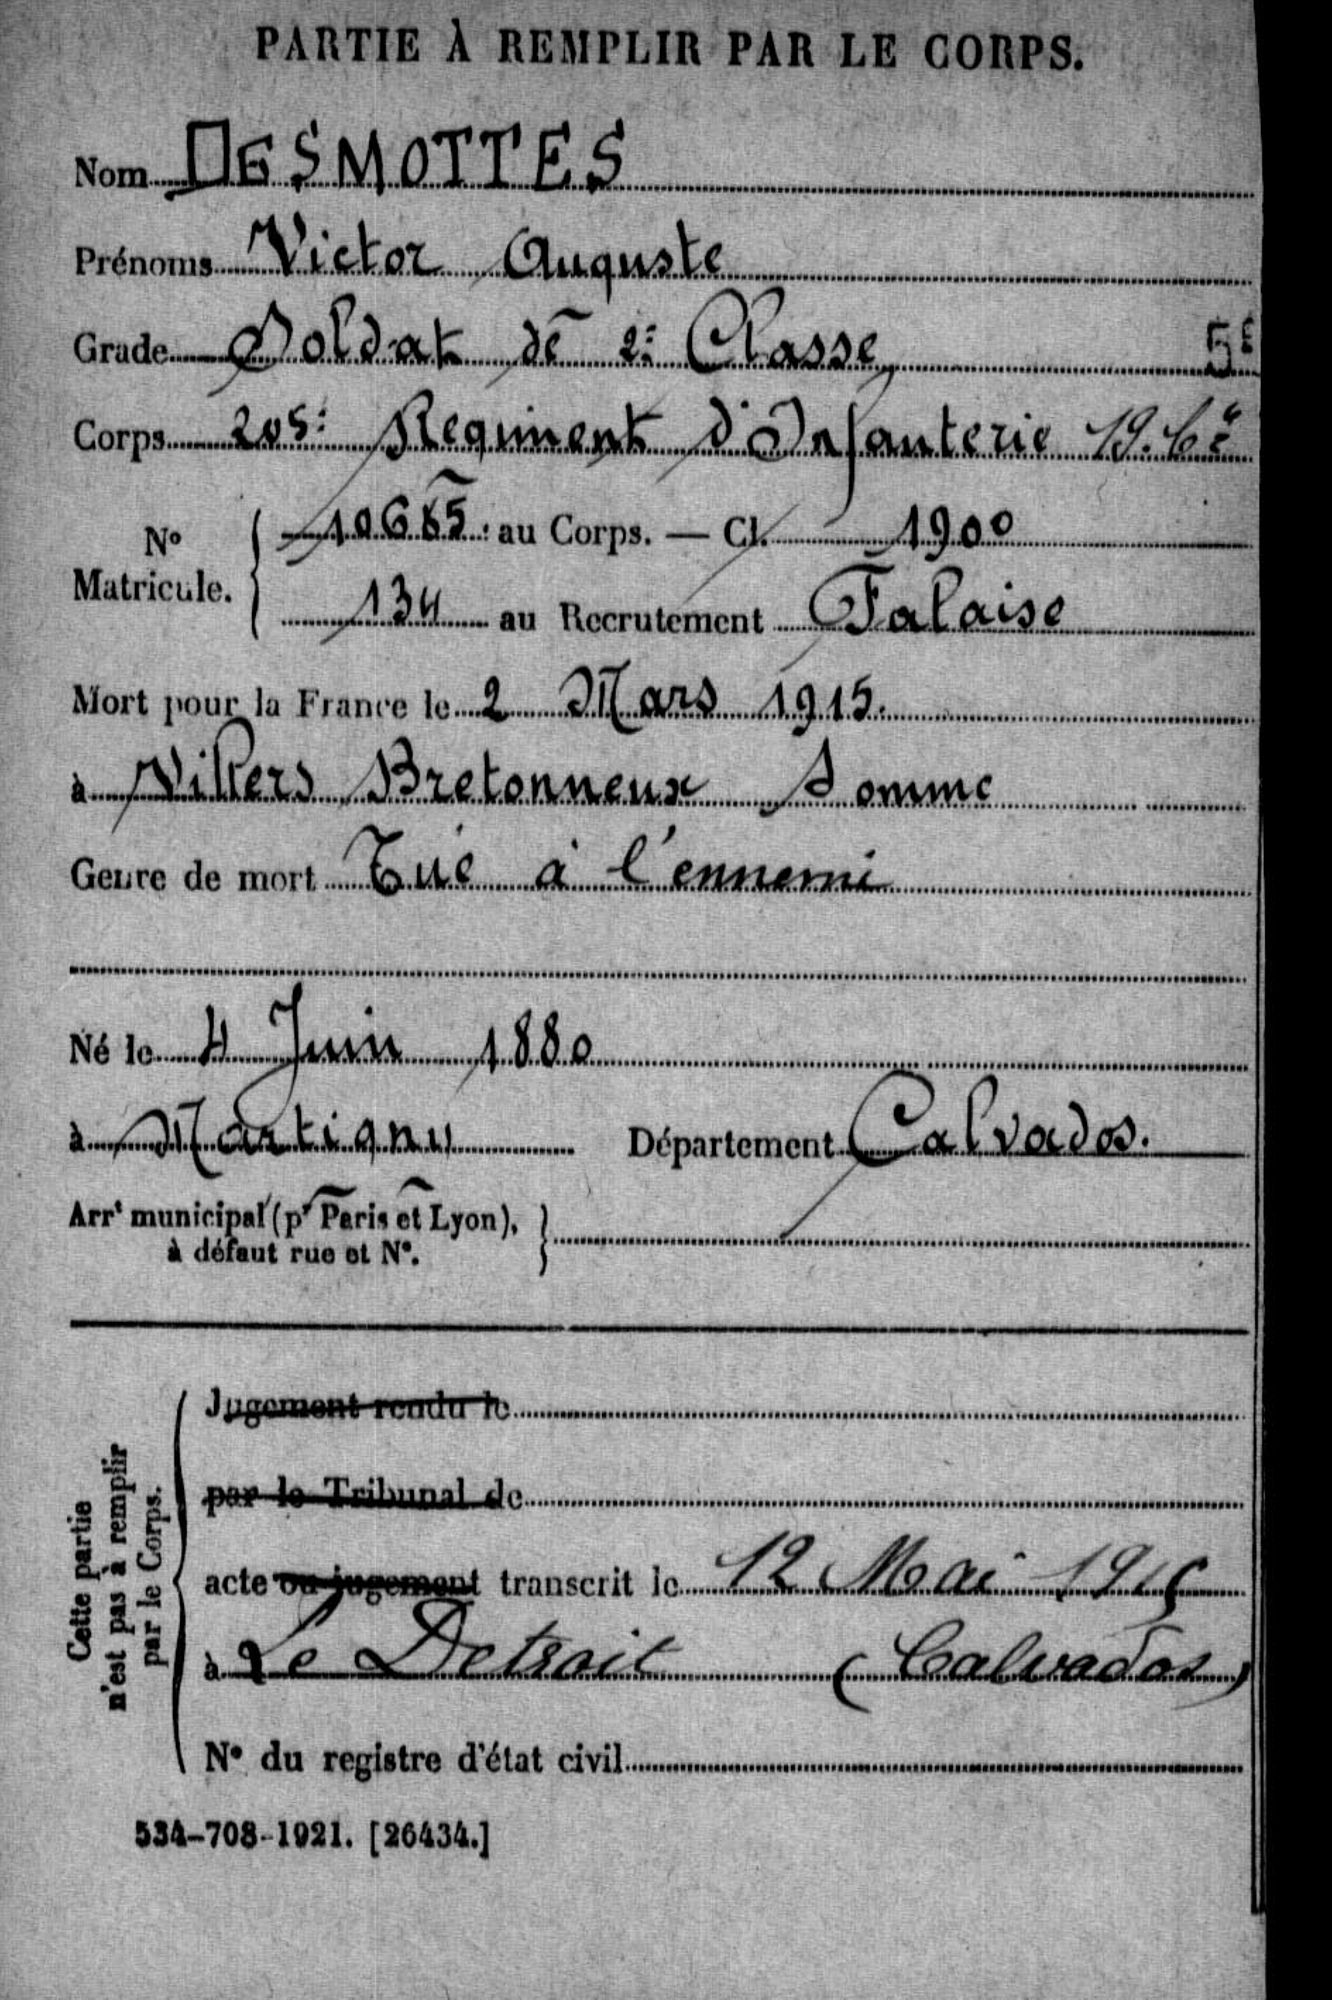 PARTIE À REMPLIR PAR LE CORPS.
Nom DESMOTTES
Prénoms Victor Auguste
Grade Soldat de 2e Classe 5e
Corps 205e Regiment d'Infanterie 19. Cie
No Matricule. 10685 au Corps. — Cl. 1900
134 au Recrutement Falaise
Mort pour la France le 2 Mars 1915.
à Villers Bretonneux Somme
Genre de mort Tué à l'ennemi
Né le 4 Juin 1880
à Martigny Département Calvados.
Arrt municipal (pr Paris et Lyon),
à défaut rue et No.
Cette partie
n'est pas à remplir
par le Corps.
Jugement rendu le
par le Tribunal de
acte ou jugement transcrit le 12 Mai 1915
à Le Detroit (Calvados)
No du registre d'état civil
534-708-1921. [26434.]